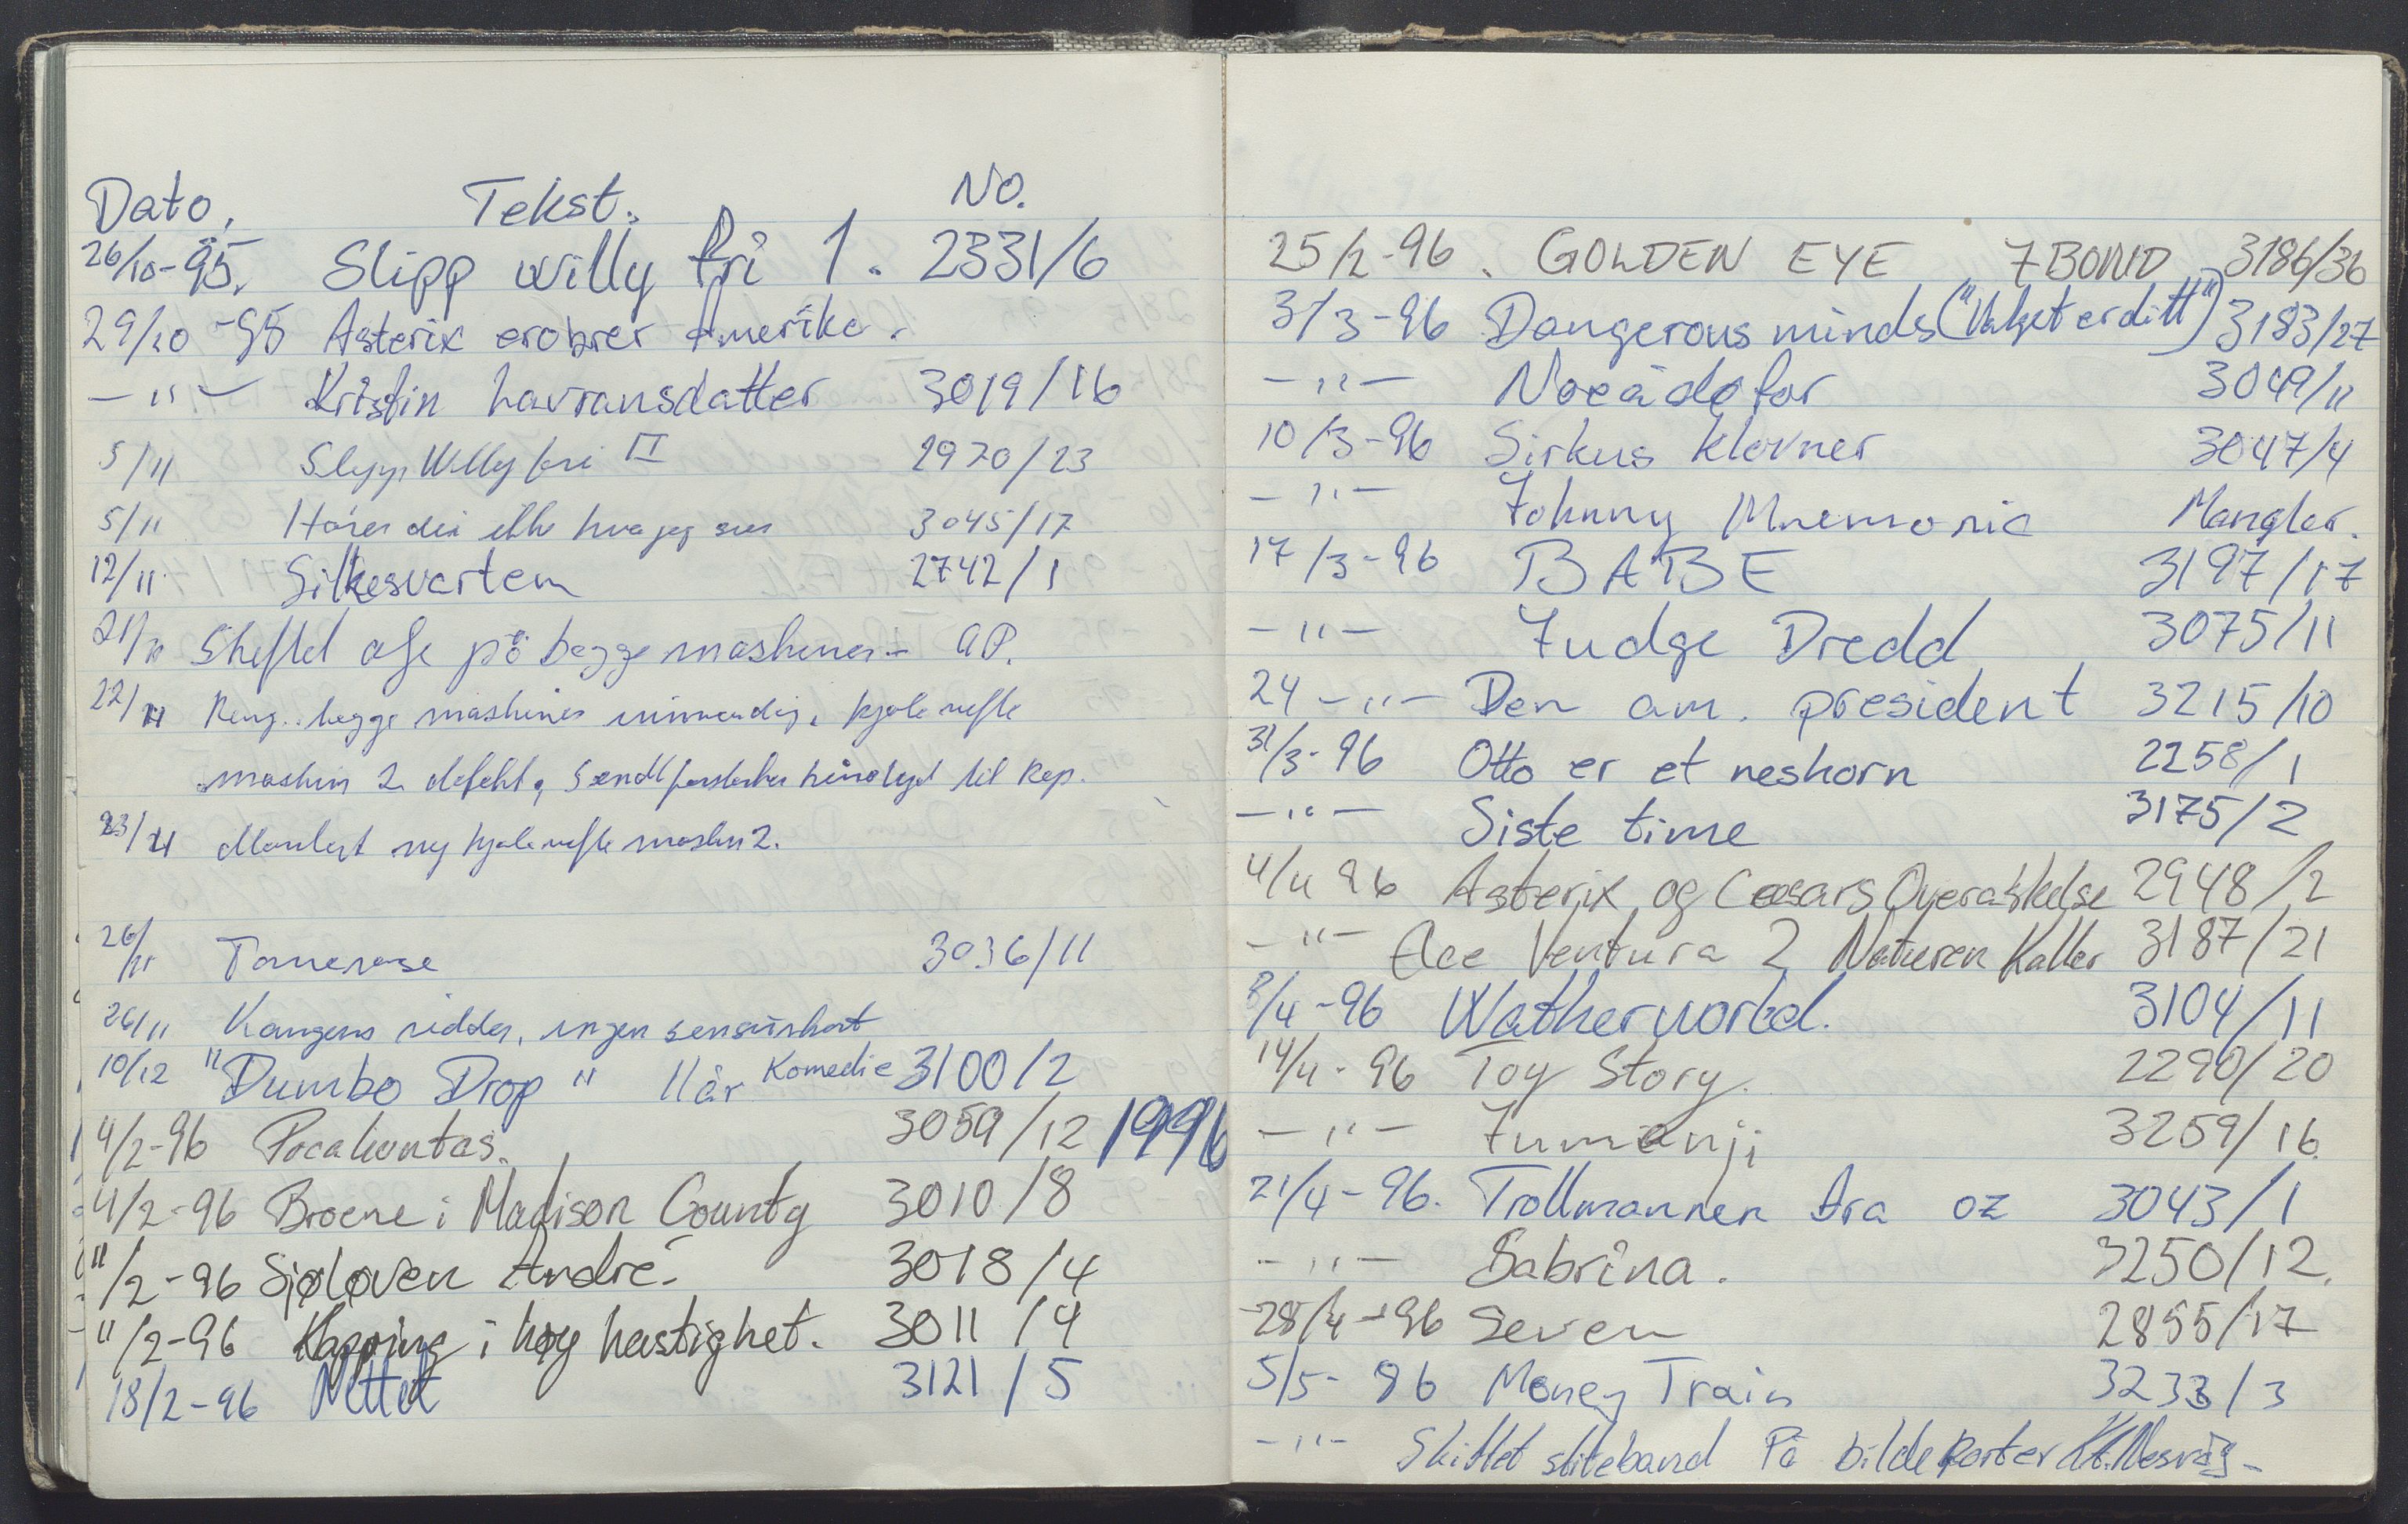 Dato. Tekst. No.
26/10-95. Slipp willy fri 1. 2331/6
29/10-95 Asterix erobrer Amerika.
— " — Kristin Lavransdatter 3019/16
5/11 Slipp Willy fri II 2970/23
5/11 Hører du ikke hva jeg sier 3045/17
12/11 Silkesvarten 2742/1
21/11 Skiftet olje på begge maskiner - AP.
22/11 Reng. begge maskiner innvendig, kjølevifte
maskin 2 defekt, Sendt forsterker til Rep.
23/11 Montert ny kjølevifte maskin 2.
26/11 Tornerose 3036/11
26/11 Kongens ridder, ingen sensurkort
10/12 "Dumbo Drop" 11 år Komedie 3100/2
4/2-96 Pocahontas. 3059/12 1996
4/2-96 Broene i Madison County 3010/8
11/2-96 Sjøløven André 3018/4
11/2-96 Kapring i høy hastighet. 3011/4
18/2-96 Nettet 3121/5
25/2-96. GOLDEN EYE 7 BOND 3186/36
3/3-96 Dangerous minds ("Valget er ditt") 3183/27
— " — Noe å dø for 3049/11
10/3-96 Sirkus klovner 3047/4
— " — Johnny Mnemonic Mangler.
17/3-96 BABE 3197/17
— " — Judge Dredd 3075/11
24 — " — Den am. president 3215/10
31/3-96 Otto er et neshorn 2258/1
— " — Siste time 3175/2
4/4 96 Asterix og Cæsars Overaskelse 2948/2
— " — Ace Ventura 2 Naturen Kaller 3187/21
8/4-96 Watherworld. 3104/11
14/4-96 Toy Story. 2290/20
— " — Jumanji 3259/16
21/4-96. Trollmannen fra oz 3043/1
— " — Sabrina. 3250/12.
28/4-96 Seven 2855/17
5/5-96 Money Train 3233/3
— " — Skiftet slitebånd På bildeporter